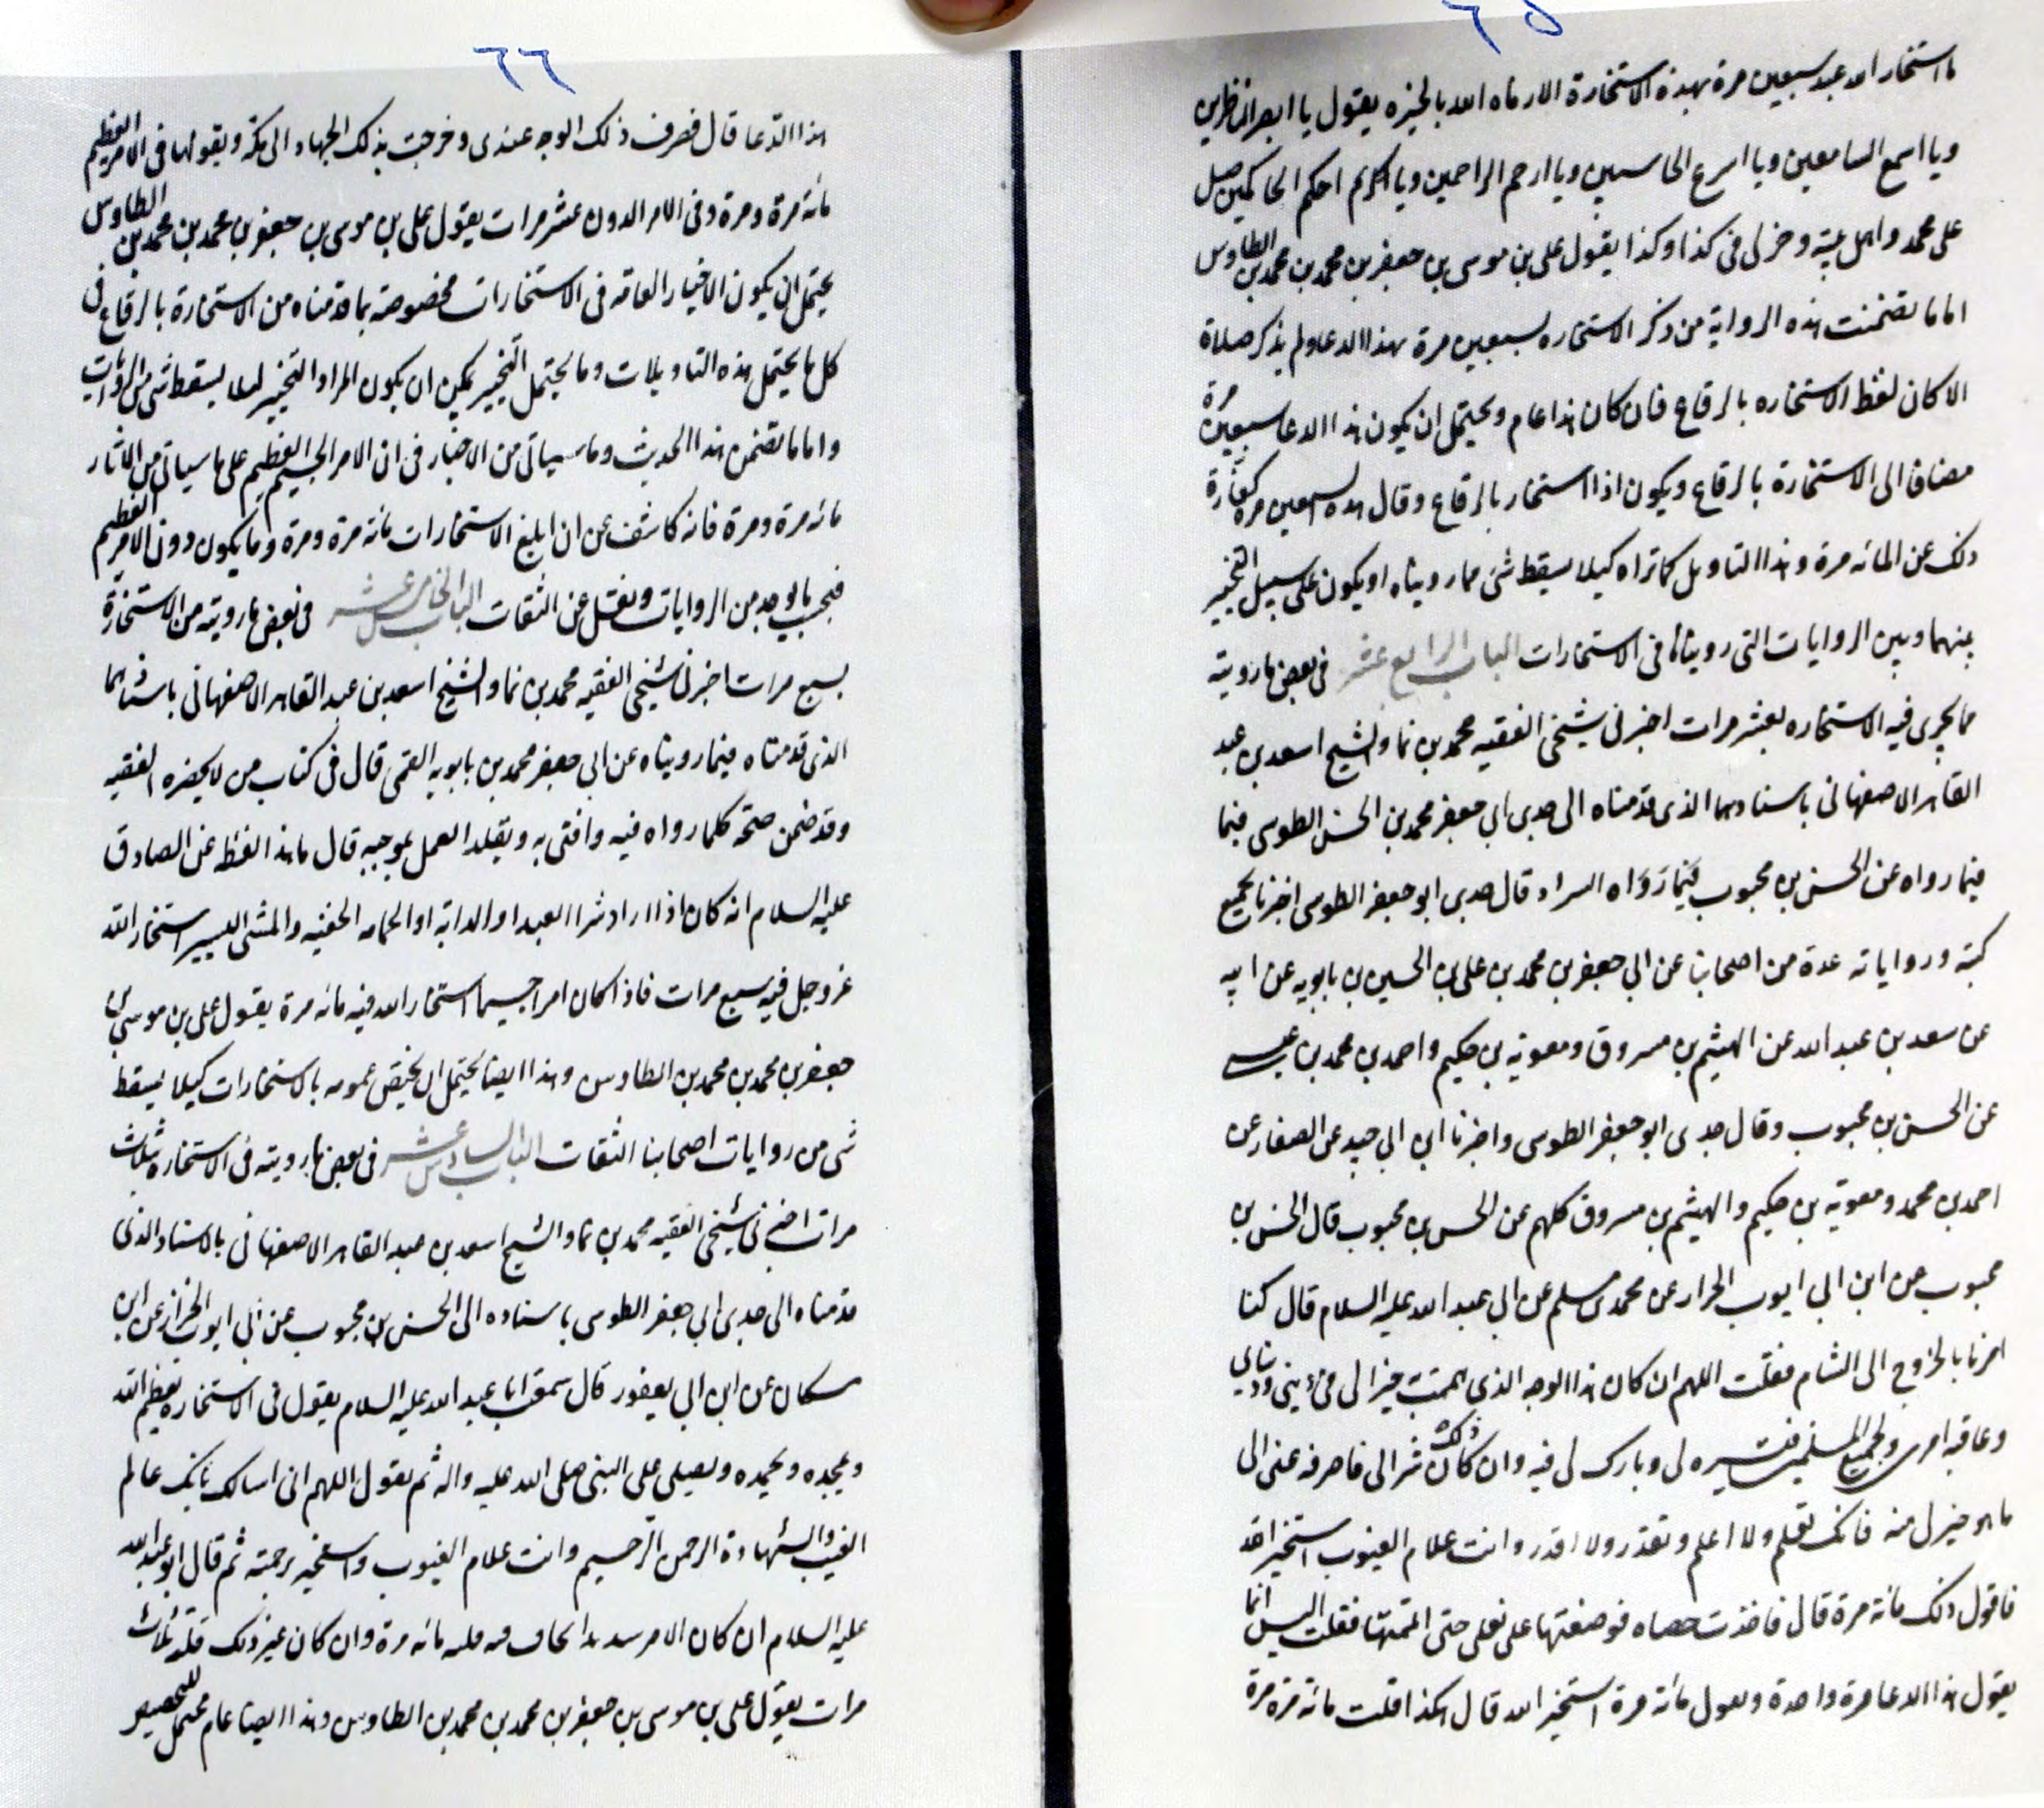 ٦٥
ما استخار الله عبد سبعين مرة بهذه الاستخارة الا رماه الله بالخيره يقول يا ابصر الناظرين
ويا اسمع السامعين ويا اسرع الحاسبين ويا ارحم الراحمين ويا احكم الحاكمين صل
على محمد واهل بيته وخر لى فى كذا وكذا يقول على بن موسى بن جعفر بن محمد بن محمد بن الطاوس
اما ما تضمنت هذه الرواية من ذكر الاستخاره سبعين مرة بهذا الدعا ولم يذكر صلاة
الا كان لفظ الاستخاره بالرقاع فان كان هذا عام ويحتمل ان يكون هذا الدعا سبعين مرة
مضافا الى الاستخارة بالرقاع ويكون اذا استخار بالرقاع وقال هذه السبعين مرة كفارة
ذلك عن المائه مرة وهذا التاويل كما تراه كيلا يسقط شئ مما رويناه او يكون على سبيل التخيير
بينهما وبين الروايات التى رويناها فى الاستخارات الباب الرابع عشر فى بعض ما رويته
مما يجرى فيه الاستخاره بعشر مرات اخبرنى شيخى الفقيه محمد بن نما والشيخ اسعد بن عبد
القاهر الاصفهانى باسنادهما الذى قدمناه الى جدى ابى جعفر محمد بن الحسن الطوسى فيما
فيما رواه عن الحسن بن محبوب فيما رواه السراد قال جدى ابو جعفر الطوسى اخبرنا بجميع
كتبه ورواياته عدة من اصحابنا عن ابى جعفر بن محمد بن على بن الحسين بن بابويه عن ابيه
عن سعد بن عبد الله عن الهيثم بن مسروق ومعوية بن حكيم واحمد بن محمد بن عيسى
عن الحسن بن محبوب وقال جدى ابو جعفر الطوسى واخبرنا ابن ابى جيد عن الصفار عن
احمد بن محمد ومعوية بن حكيم والهيثم بن مسروق كلهم عن الحسن بن محبوب قال الحسن بن
محبوب عن ابن ابى ايوب الخراز عن محمد بن مسلم عن ابى عبد الله عليه السلام قال كنا
امرنا بالخروج الى الشام فقلت اللهم ان كان هذا الوجه الذى هممت خيرا لى فى دينى ودنياى
وعاقبه امرى ولجميع المسلمين فيسره لى وبارك لى فيه وان كان ذلك شرا لى فاصرفه عنى الى
ما هو خير لى منه فانك تعلم ولا اعلم وتقدر ولا اقدر وانت علام الغيوب استخير الله
فاقول ذلك مائة مرة قال فاخذت حصاه فوضعتها على نعلى حتى اتممتها فقلت اليس انما
يقول هذا الدعا مرة واحدة ويقول مائة مرة استخير الله قال هكذا قلت مائة مرة مرة
٦٦
هذا الدعا قال فصرف ذلك الوجه عندى وخرجت بذلك الجهاد الى مكة ويقولها فى الامر العظيم
مائة مرة ومرة وفى الامر الدون عشر مرات يقول على بن موسى بن جعفر بن محمد بن محمد بن الطاوس
يحتمل ان يكون الاخبار العامه فى الاستخارات مخصوصة بما قدمناه من الاستخارة بالرقاع فى
كل ما يحتمل هذه التاويلات وما يحتمل التخيير يمكن ان يكون المراد التخيير لئلا يسقط شئ من الروايات
واما ما تضمن هذا الحديث وما سياتى من الاخبار فى ان الامر الجسيم العظيم على ما سياتى من الاثار
مائه مرة ومرة فانه كاشف عن ان ابلغ الاستخارات مائة مرة ومرة وما يكون دون الامر العظيم
فبحسب ما يوجد من الروايات ونقل عن الثقات الباب الخامس عشر فى بعض ما رويته من الاستخارة
بسبع مرات اخبرنى شيخى الفقيه محمد بن نما والشيخ اسعد بن عبد القاهر الاصفهانى باسنادهما
الذى قدمناه فيما رويناه عن ابى جعفر محمد بن بابويه القمى قال فى كتاب من لا يحضره الفقيه
وقد ضمن صحة كلما رواه فيه وافتى به ويقلد العمل بموجبه قال ما هذا لفظه عن الصادق
عليه السلام انه كان اذا اراد شرا العبد او الدابة او الحاجه الخفيفه والشئ اليسير استخار الله
عز وجل فيه سبع مرات فاذا كان امرا جسيما استخار الله فيه مائه مرة يقول على بن موسى بن
جعفر بن محمد بن محمد بن الطاوس وهذا ايضا يحتمل ان يختص عمومه بالاستخارات كيلا يسقط
شئ من روايات اصحابنا الثقات الباب السادس عشر فى بعض ما رويته فى الاستخاره بثلاث
مرات اخبرنى شيخى الفقيه محمد بن نما والشيخ اسعد بن عبد القاهر الاصفهانى بالاسناد الذى
قدمناه الى جدى ابى جعفر الطوسى باسناده الى الحسن بن محبوب عن ابى ايوب الخراز عن ابن
مسكان عن ابن ابى يعفور قال سمعت ابا عبد الله عليه السلام يقول فى الاستخاره يعظم الله
ويمجده ويحمده ويصلى على النبى صلى الله عليه واله ثم يقول اللهم انى اسالك بانك عالم
الغيب والشهادة الرحمن الرحيم وانت علام الغيوب واستخير برحمته ثم قال ابو عبد الله
عليه السلام ان كان الامر شديدا تخاف فيه قلته مائه مرة وان كان غير ذلك قلته ثلاث
مرات يقول على بن موسى بن جعفر بن محمد بن محمد بن الطاوس وهذا ايضا عام محتمل للتخصيص